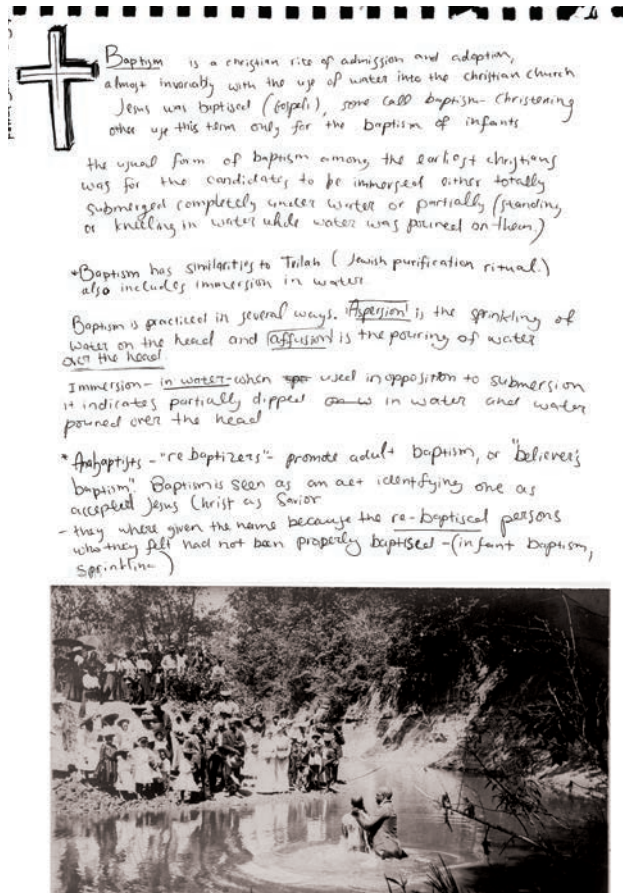 Baptism is a christian rite of admission and adoption,
almost invariably with the use of water into the christian church
Jesus was baptised (Gospels), some call baptism- christening
other use this term only for the baptism of infants
the usual form of baptism among the earliest christians
was for the candidates to be immersed either totally
submerged completely under water or partially (standing
or kneeling in water while water was poured on them.)
*Baptism has similarities to Tvilah (Jewish purification ritual.)
also includes immersion in water
Baptism is practiced in several ways. Aspersion is the sprinkling of
water on the head and affusion is the pouring of water
over the head.
Immersion - in water - when used in opposition to submersion
it indicates partially dipped in water and water
poured over the head
* Anabaptists - "re baptizers" - promote adult baptism, or "believer's
baptism". Baptism is seen as an act identifying one as
accepted Jesus Christ as Savior
- they where given the name because the re-baptised persons
who they felt had not been properly baptised - (infant baptism,
sprinkling)